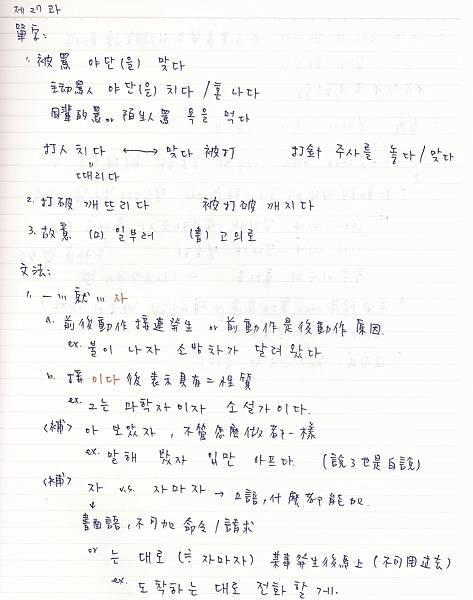 제 27 과
單字:
1. 被罵 야단(을) 맞다
主動罵人 야단(을) 치다 / 혼 나다
同輩的罵 or 陌生人罵 욕을 먹다
打人 치다 ↔ 맞다 被打 打針 주사를 놓다 / 맞다
=
때리다
2. 打破 깨뜨리다 被打破 깨지다
3. 故意 (口) 일부러 (書) 고의로
文法:
1. 一 … 就 … 자
a. 前後動作接連發生 or 前動作是後動作原因.
ex. 불이 나자 소방차가 달려 왔다
b. 接 이다 後表示具有二性質
ex. 그는 과학자이자 소설가이다.
<補> 아 보았자, 不管怎麼做都一樣
ex. 말해 봤자 입만 아프다. (說了也是白說)
<補> 자 v.s. 자마자 → 口語, 什麼都能加.
↓
書面語, 不可加命令 / 請求
or 는 대로 (= 자마자) 某事發生後馬上 (不可用過去)
ex. 도착하는 대로 전화 할게.